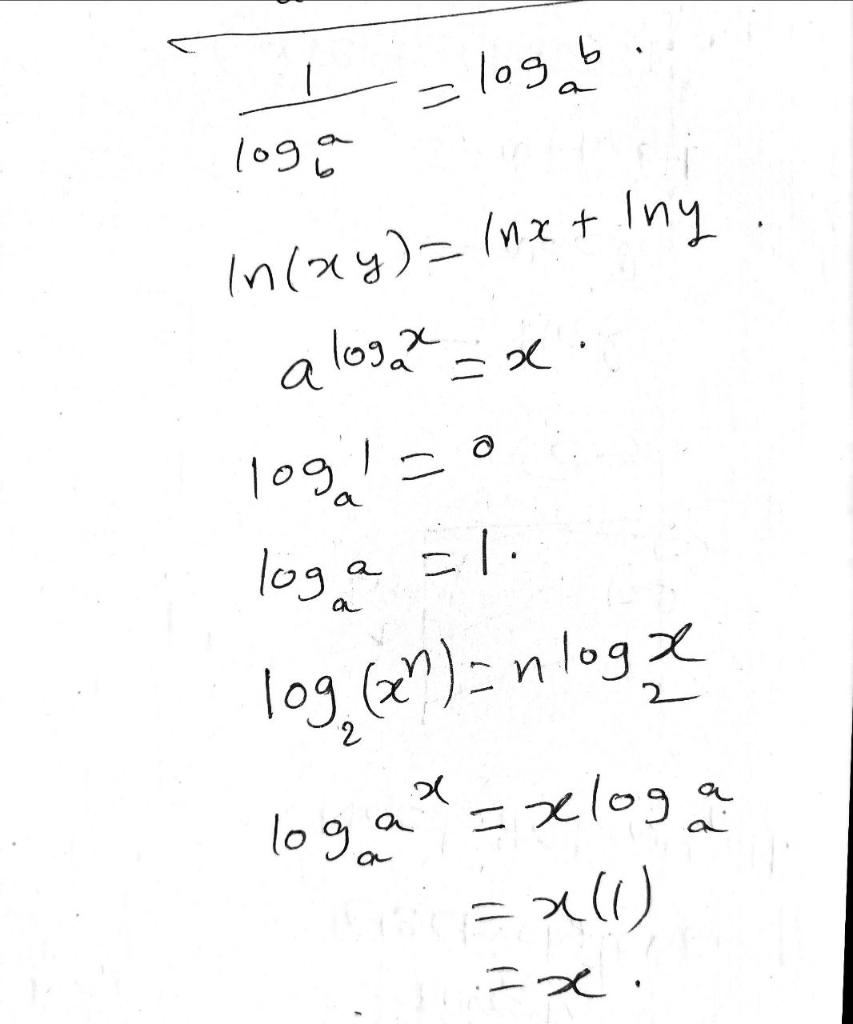 1/log_b a = log_a b.
ln(xy) = lnx + lny.
a^(log_a x) = x.
log_a 1 = 0
log_a a = 1.
log_2 (x^n) = n log_2 x
log_a a^x = x log_a a
= x(1)
= x.